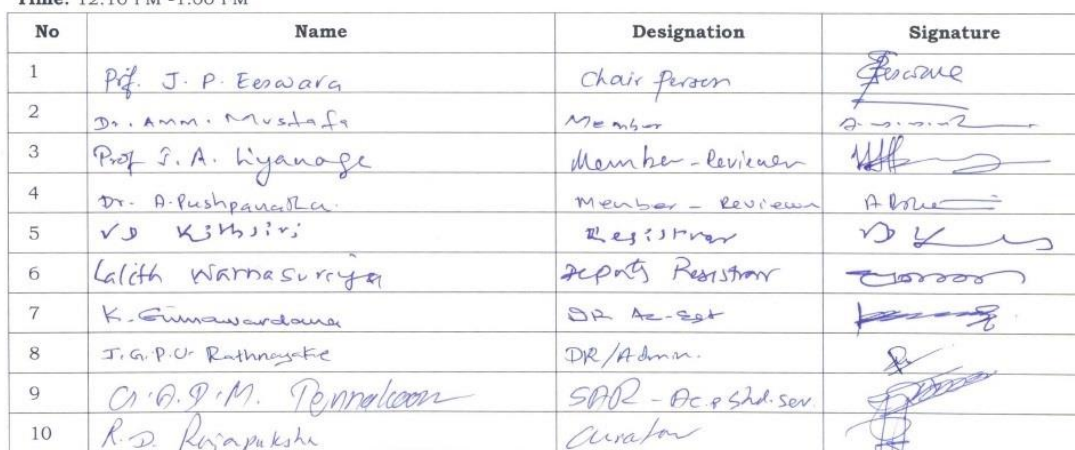 Time: 12.10 PM -1.00 PM
No Name Designation Signature
1 Prof. J. P. Eeswara Chair person
2 Dr. AMM. Mustafa Member
3 Prof J. A. Liyanage Member-Reviewer
4 Dr. A. Pushpanatha Member - Reviewer
5 V D Kithsiri Registrar
6 Lalith Warnasuriya Deputy Registrar
7 K. Gunawardana DR
8 J.G.P.U. Rathnayake DR/Admin.
9 G.A.D.M. Tennakoon SAR - Ac. & Stud. Ser.
10 R. D. Rajapaksha Curator